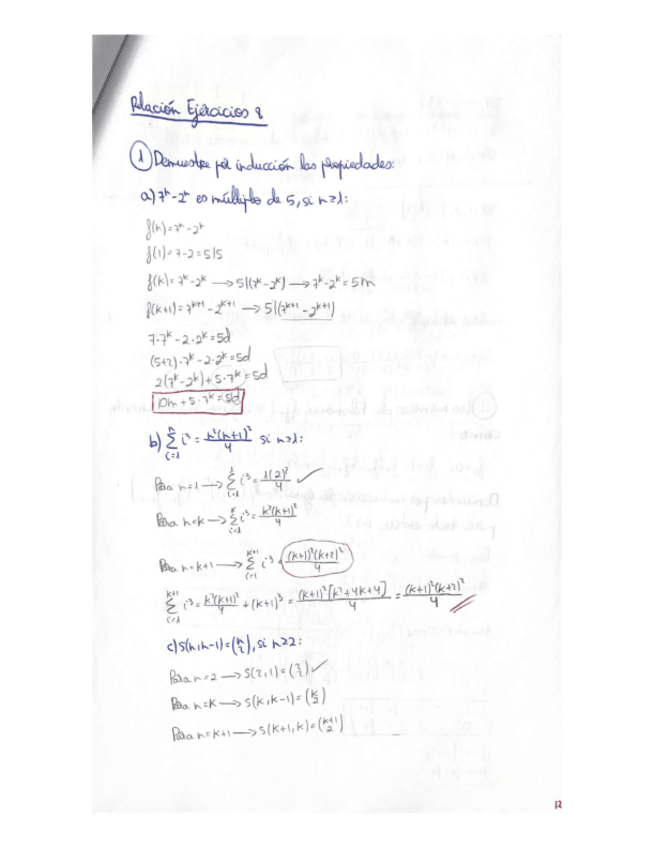 Relación Ejercicios 8
① Demuestre por inducción las propiedades:
a) 7ⁿ-2ⁿ es múltiplo de 5, si n≥1:
f(n)=7ⁿ-2ⁿ
f(1)=7-2=5|5
f(k)=7ᵏ-2ᵏ → 5|(7ᵏ-2ᵏ) → 7ᵏ-2ᵏ=5m
f(k+1)=7ᵏ⁺¹-2ᵏ⁺¹ → 5|(7ᵏ⁺¹-2ᵏ⁺¹)
7·7ᵏ-2·2ᵏ=5d
(5+2)·7ᵏ-2·2ᵏ=5d
2(7ᵏ-2ᵏ)+5·7ᵏ=5d
10m+5·7ᵏ=5d
b) ∑ᵢ₌₁ⁿ i³ = n²(n+1)²/4 si n≥1:
Para n=1 → ∑ᵢ₌₁¹ i³ = 1(2)²/4 ✓
Para n=k → ∑ᵢ₌₁ᵏ i³ = k²(k+1)²/4
Para n=k+1 → ∑ᵢ₌₁ᵏ⁺¹ i³ = (k+1)²(k+2)²/4
∑ᵢ₌₁ᵏ⁺¹ i³ = k²(k+1)²/4 + (k+1)³ = (k+1)²[k²+4k+4]/4 = (k+1)²(k+2)²/4
c) S(n,n-1)=(n 2), si n≥2:
Para n=2 → S(2,1)=(2 2) ✓
Para n=k → S(k,k-1)=(k 2)
Para n=k+1 → S(k+1,k)=(k+1 2)
12